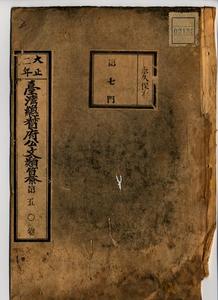 大正二年
臺灣總督府公文類纂
第五〇卷
第七門
永久保存